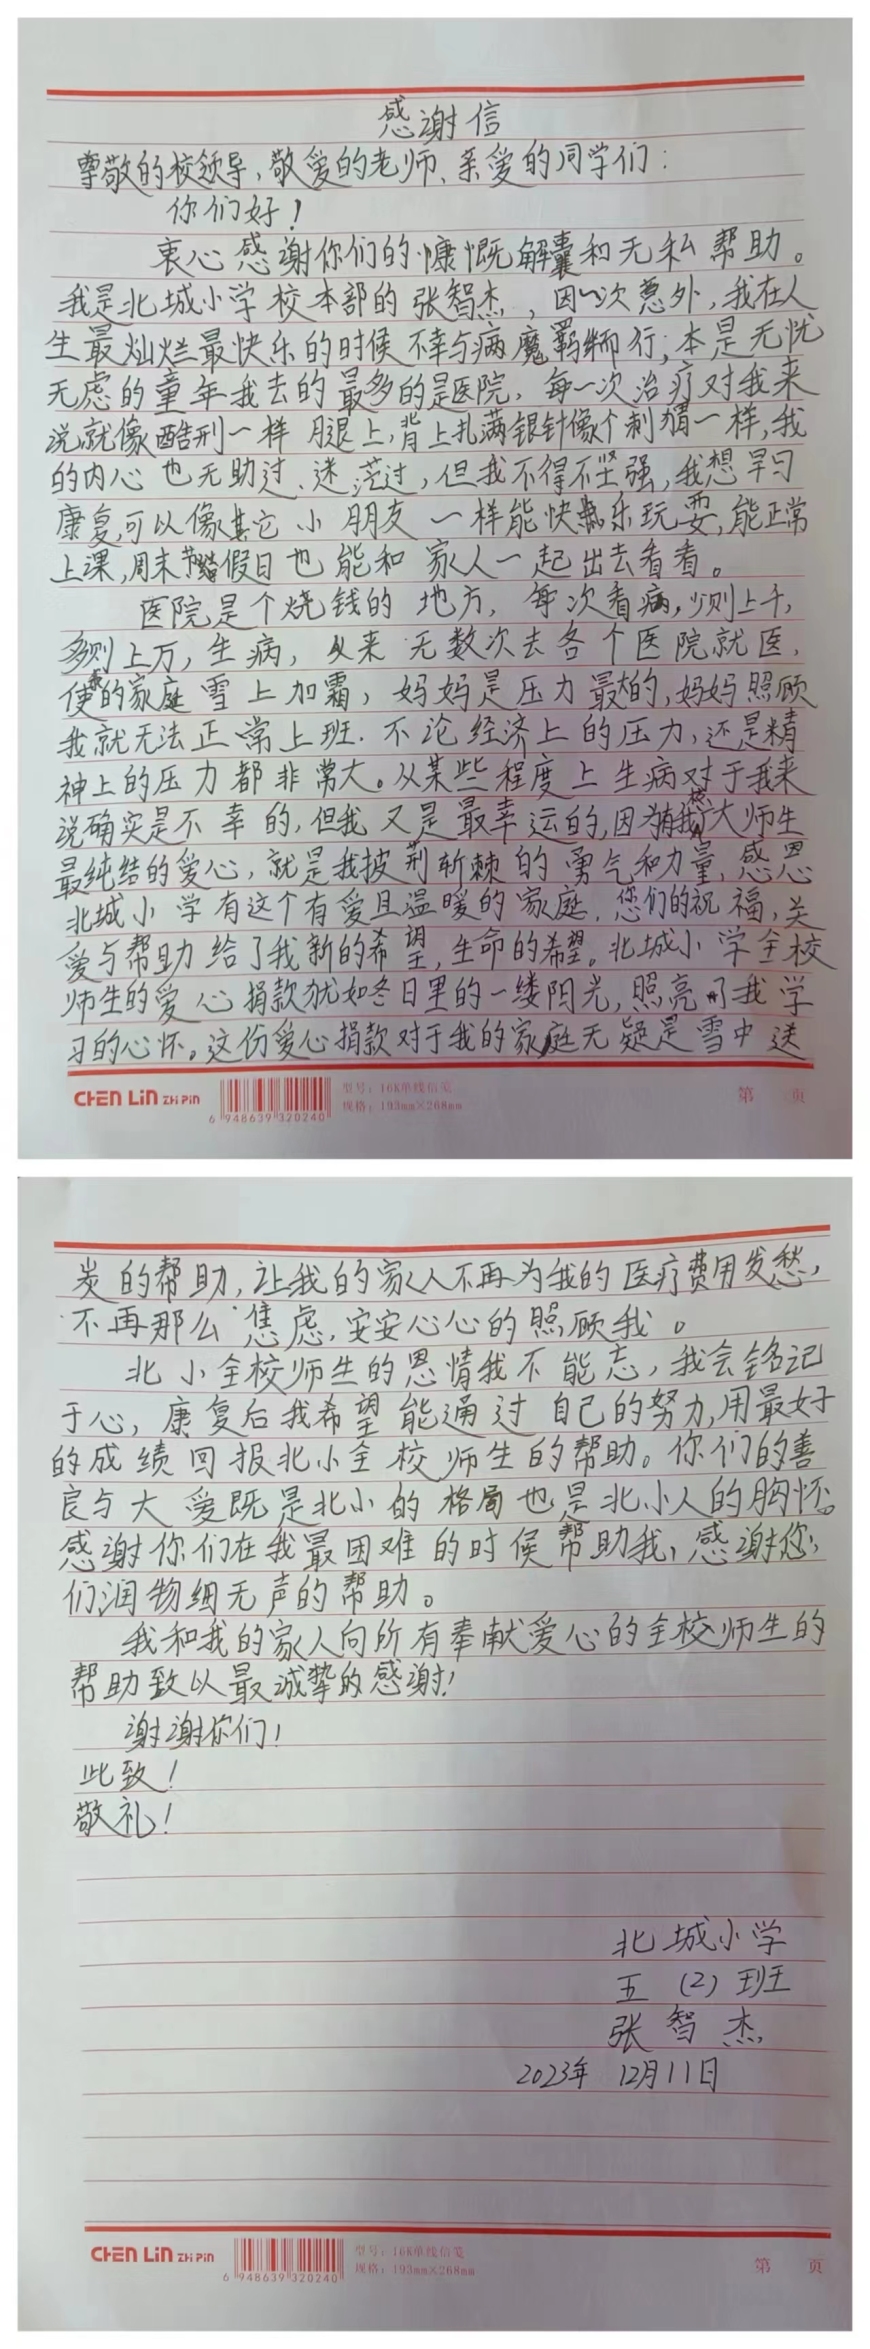 感谢信
尊敬的校领导、敬爱的老师、亲爱的同学们：
你们好！
衷心感谢你们的慷慨解囊和无私帮助。
我是北城小学校本部的张智杰，因一次意外，我在人
生最灿烂最快乐的时候不幸与病魔羁绊而行，本是无忧
无虑的童年我去的最多的是医院，每一次治疗对我来
说就像酷刑一样腿上，背上扎满银针像个刺猬一样，我
的内心也无助过、迷茫过，但我不得不坚强，我想早日
康复，可以像其它小朋友一样能快乐玩耍，能正常
上课，周末节假日也能和家人一起出去看看。
医院是个烧钱的地方，每次看病，少则上千，
多则上万，生病，以来无数次去各个医院就医，
使我的家庭雪上加霜，妈妈是压力最大的，妈妈照顾
我就无法正常上班．不论经济上的压力，还是精
神上的压力都非常大。从某些程度上生病对于我来
说确实是不幸的，但我又是最幸运的，因为有我校大师生
最纯结的爱心，就是我披荆斩棘的勇气和力量，感恩
北城小学有这个有爱且温暖的家庭，您们的祝福，关
爱与帮助给了我新的希望，生命的希望。北城小学全校
师生的爱心捐款犹如冬日里的一缕阳光，照亮了我学
习的心怀。这份爱心捐款对于我的家庭无疑是雪中送
CHEN LiN ZHi PiN
6 948639 320240
型号：16K单线信笺
规格：193mm×268mm
第 页
炭的帮助，让我的家人不再为我的医疗费用发愁，
不再那么焦虑，安安心心的照顾我。
北小全校师生的恩情我不能忘，我会铭记
于心，康复后我希望能通过自己的努力，用最好
的成绩回报北小全校师生的帮助。你们的善
良与大爱既是北小的格局也是北小人的胸怀。
感谢你们在我最困难的时候帮助我，感谢您
们润物细无声的帮助。
我和我的家人向所有奉献爱心的全校师生的
帮助致以最诚挚的感谢！
谢谢你们！
此致！
敬礼！
北城小学
五（2）班
张智杰
2023年 12月11日
CHEN LiN ZHi PiN
6 948639 320240
型号：16K单线信笺
规格：193mm×268mm
第 页